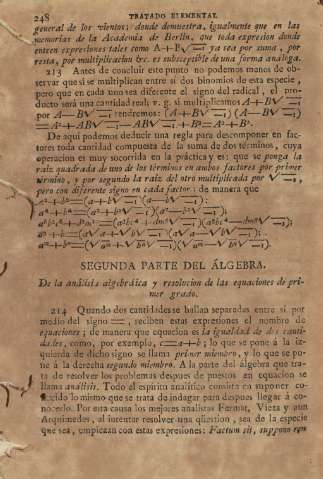 248 TRATADO ELEMENTAL
general de los vientos: donde demuestra, igualmente que en las
memorias de la Academia de Berlin, que toda expresion donde
entren expresiones tales como A+B√−1 ya sea por suma, por
resta, por multiplicacion &c. es subsceptible de una forma análoga.
213 Antes de concluir este punto no podemos menos de ob-
servar que si se multiplican entre sí dos binomios de esta especie,
pero que en cada uno sea diferente el signo del radical, el pro-
ducto será una cantidad real: v. g. si multiplicamos A+B√−1
por A−B√−1 tendremos: (A+B√−1) (A−B√−1)
=A²+AB√−1−AB√−1+B²=A²+B².
De aqui podemos deducir una regla para descomponer en fac-
tores toda cantidad compuesta de la suma de dos términos, cuya
operacion es muy socorrida en la práctica y es: que se ponga la
raiz quadrada de uno de los términos en ambos factores por primer
término, y por segundo la raiz del otro multiplicada por √−1,
pero con diferente signo en cada factor: de manera que
a²+b²=(a+b√−1)(a−b√−1);
SEGUNDA PARTE DEL ÁLGEBRA.
De la análisis algebráica y resolucion de las equaciones de pri-
mer grado.
214 Quando dos cantidades se hallan separadas entre sí por
medio del signo =, reciben estas expresiones el nombre de
equaciones; de manera que equacion es la igualdad de dos canti-
dades, como, por exemplo, c=a+b; lo que se pone á la iz-
quierda de dicho signo se llama primer miembro, y lo que se po-
ne á la derecha segundo miembro. A la parte del álgebra que tra-
ta de resolver los problemas despues de puestos en equacion se
llama análisis. Todo el espíritu analítico consiste en suponer co-
nocido lo mismo que se trata de indagar para despues llegar á co-
nocerlo. Por esta causa los mejores analistas Fermat, Vieta y aun
Arquimedes, al intentar resolver una qüestion, sea de la especie
que sea, empiezan con estas expresiones: Factum sit, suppono